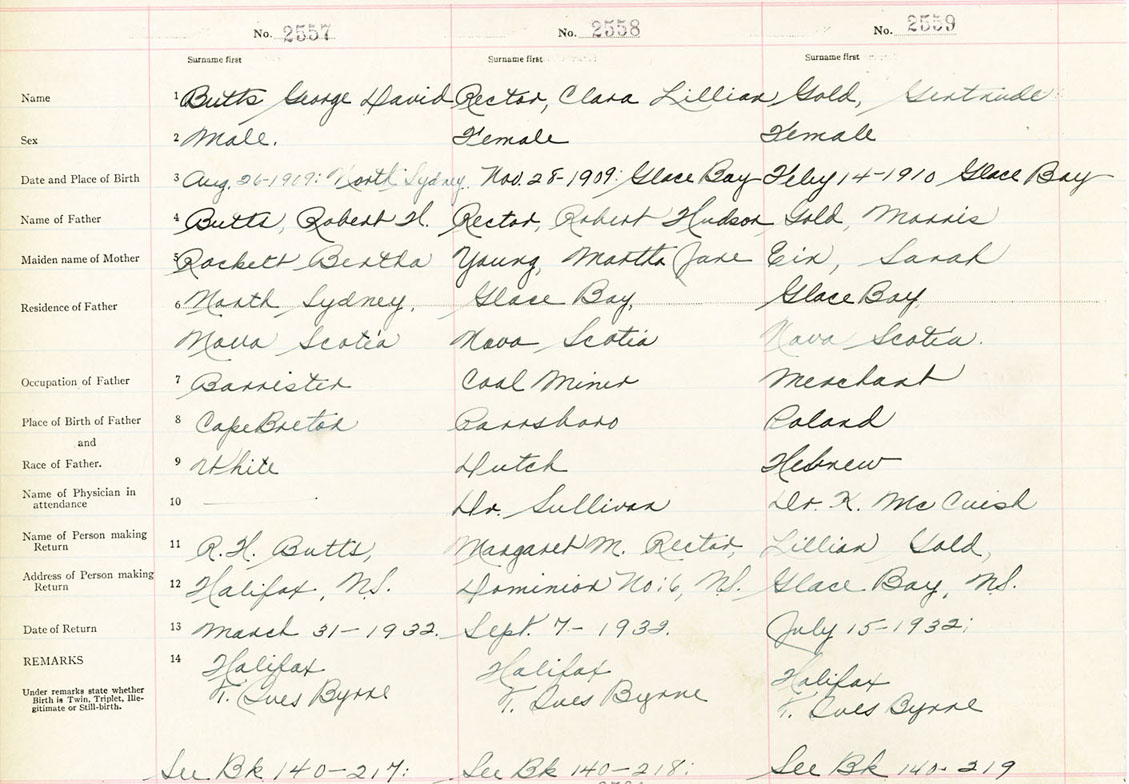 No. 2557 No. 2558 No. 2559
Surname first Surname first Surname first
Name 1 Butts George David Rector, Clara Lillian Gold, Gertrude
Sex 2 Male. Female Female
Date and Place of Birth 3 Aug. 26-1909: North Sydney. Nov. 28-1909: Glace Bay Feby 14-1910 Glace Bay
Name of Father 4 Butts, Robert H. Rector, Robert Hudson Gold, Morris
Maiden name of Mother 5 Rockett Bertha Young, Martha Jane Ein, Sarah
Residence of Father 6 North Sydney, Glace Bay, Glace Bay,
Nova Scotia Nova Scotia Nova Scotia.
Occupation of Father 7 Barrister Coal Miner Merchant
Place of Birth of Father 8 Cape Breton Parrsboro Poland
and
Race of Father. 9 White Dutch Hebrew
Name of Physician in attendance 10 Dr. Sullivan Dr. K. McCuish
Name of Person making Return 11 R. H. Butts, Margaret M. Rector, Lillian Gold,
Address of Person making Return 12 Halifax, N.S. Dominion No: 6, N.S. Glace Bay, N.S.
Date of Return 13 March 31-1932. Sept. 7-1932. July 15-1932:
REMARKS 14 Halifax Halifax Halifax
Under remarks state whether Birth is Twin, Triplet, Ille-
gitimate or Still-birth.
F. Ives Byrne F. Ives Byrne F. Ives Byrne
See Bk 140-217: See Bk 140-218: See Bk 140-219